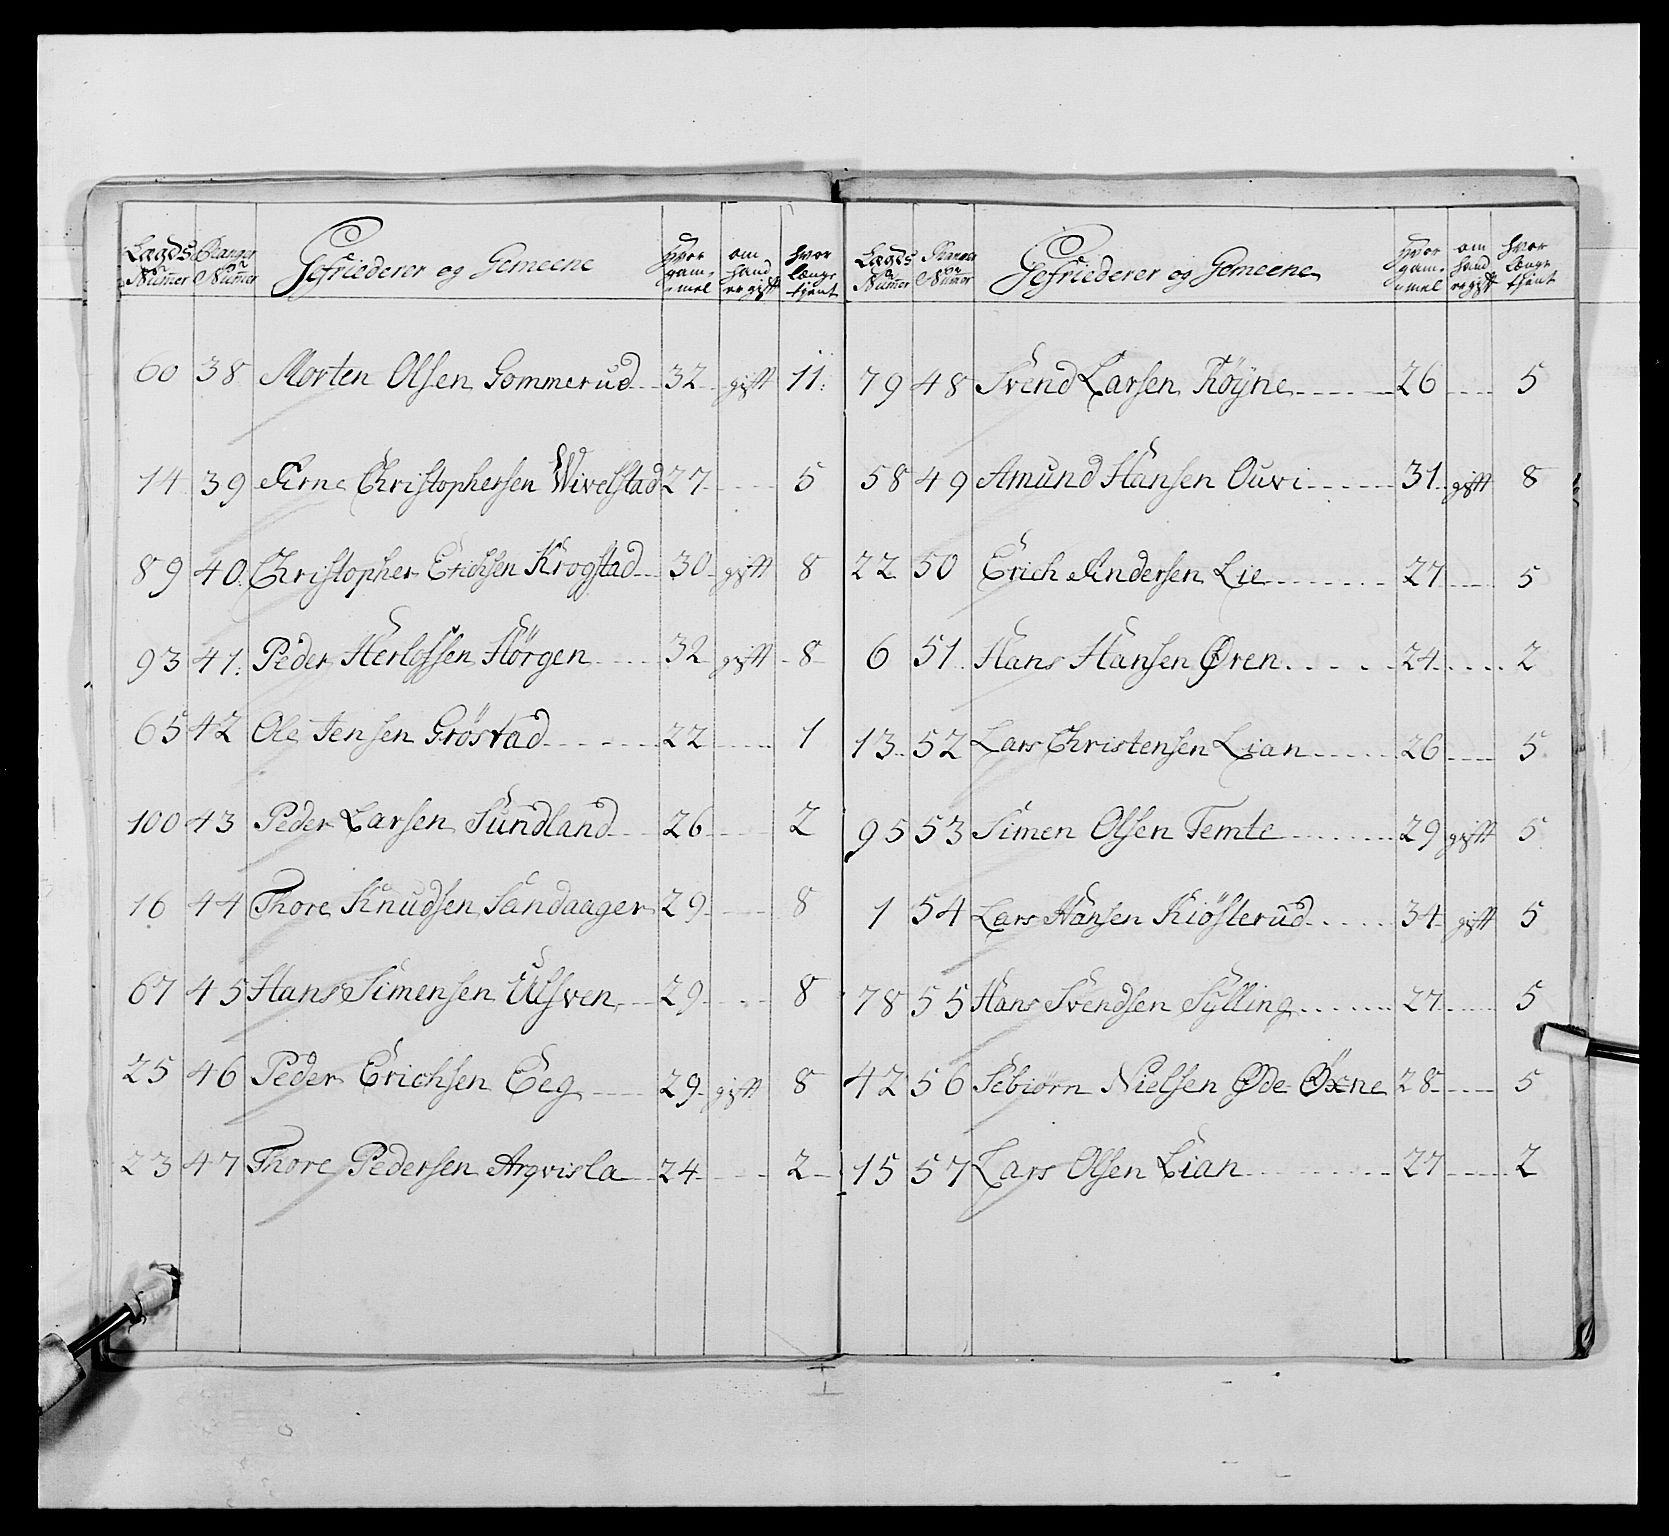 Lægds Nummer | Range Nummer | Gefriederer og Gemeene | Hvor gam-mel | om hand er gift | hvor længe tjent
60 38 Morten Olsen Gommerud 32 gift 11.
14 39 Arne Christophersen Wivelstad 27 5
89 40. Christopher Erichsen Krogstad 30 gift 8
93 41. Peder Herlofsen Hörgen 32 gift 8
65 42 Ole Jensen Gröstad 22 1
100 43 Peder Larsen Sundland 26 2
16 44 Thore Knudsen Sandaager 29 8
67 45 Hans Simensen Ulsven 29 8
25 46 Peder Erichsen Eeg 29 gift 8
23 47 Thore Pedersen Arqvisla 24 2
Lægds Nummer | Range Nummer | Gefriederer og Gemeene | Hvor gam-mel | om hand er gift | hvor længe tjent
79 48 Svend Larsen Röyne 26 5
58 49 Amund Hansen Ouvi 31 gift 8
22 50 Erich Andersen Lie 27 5
6 51. Hans Hansen Øren 24 2
13 52 Lars Christensen Lian 26 5
95 53 Simen Olsen Temte 29 gift 5
1 54 Lars Hansen Kiösterud 34 gift 5
78 55 Hans Svendsen Sylling 27 5
42 56 Sebiørn Nielsen Øde Øxne 28 5
15 57 Lars Olsen Lian 27 2